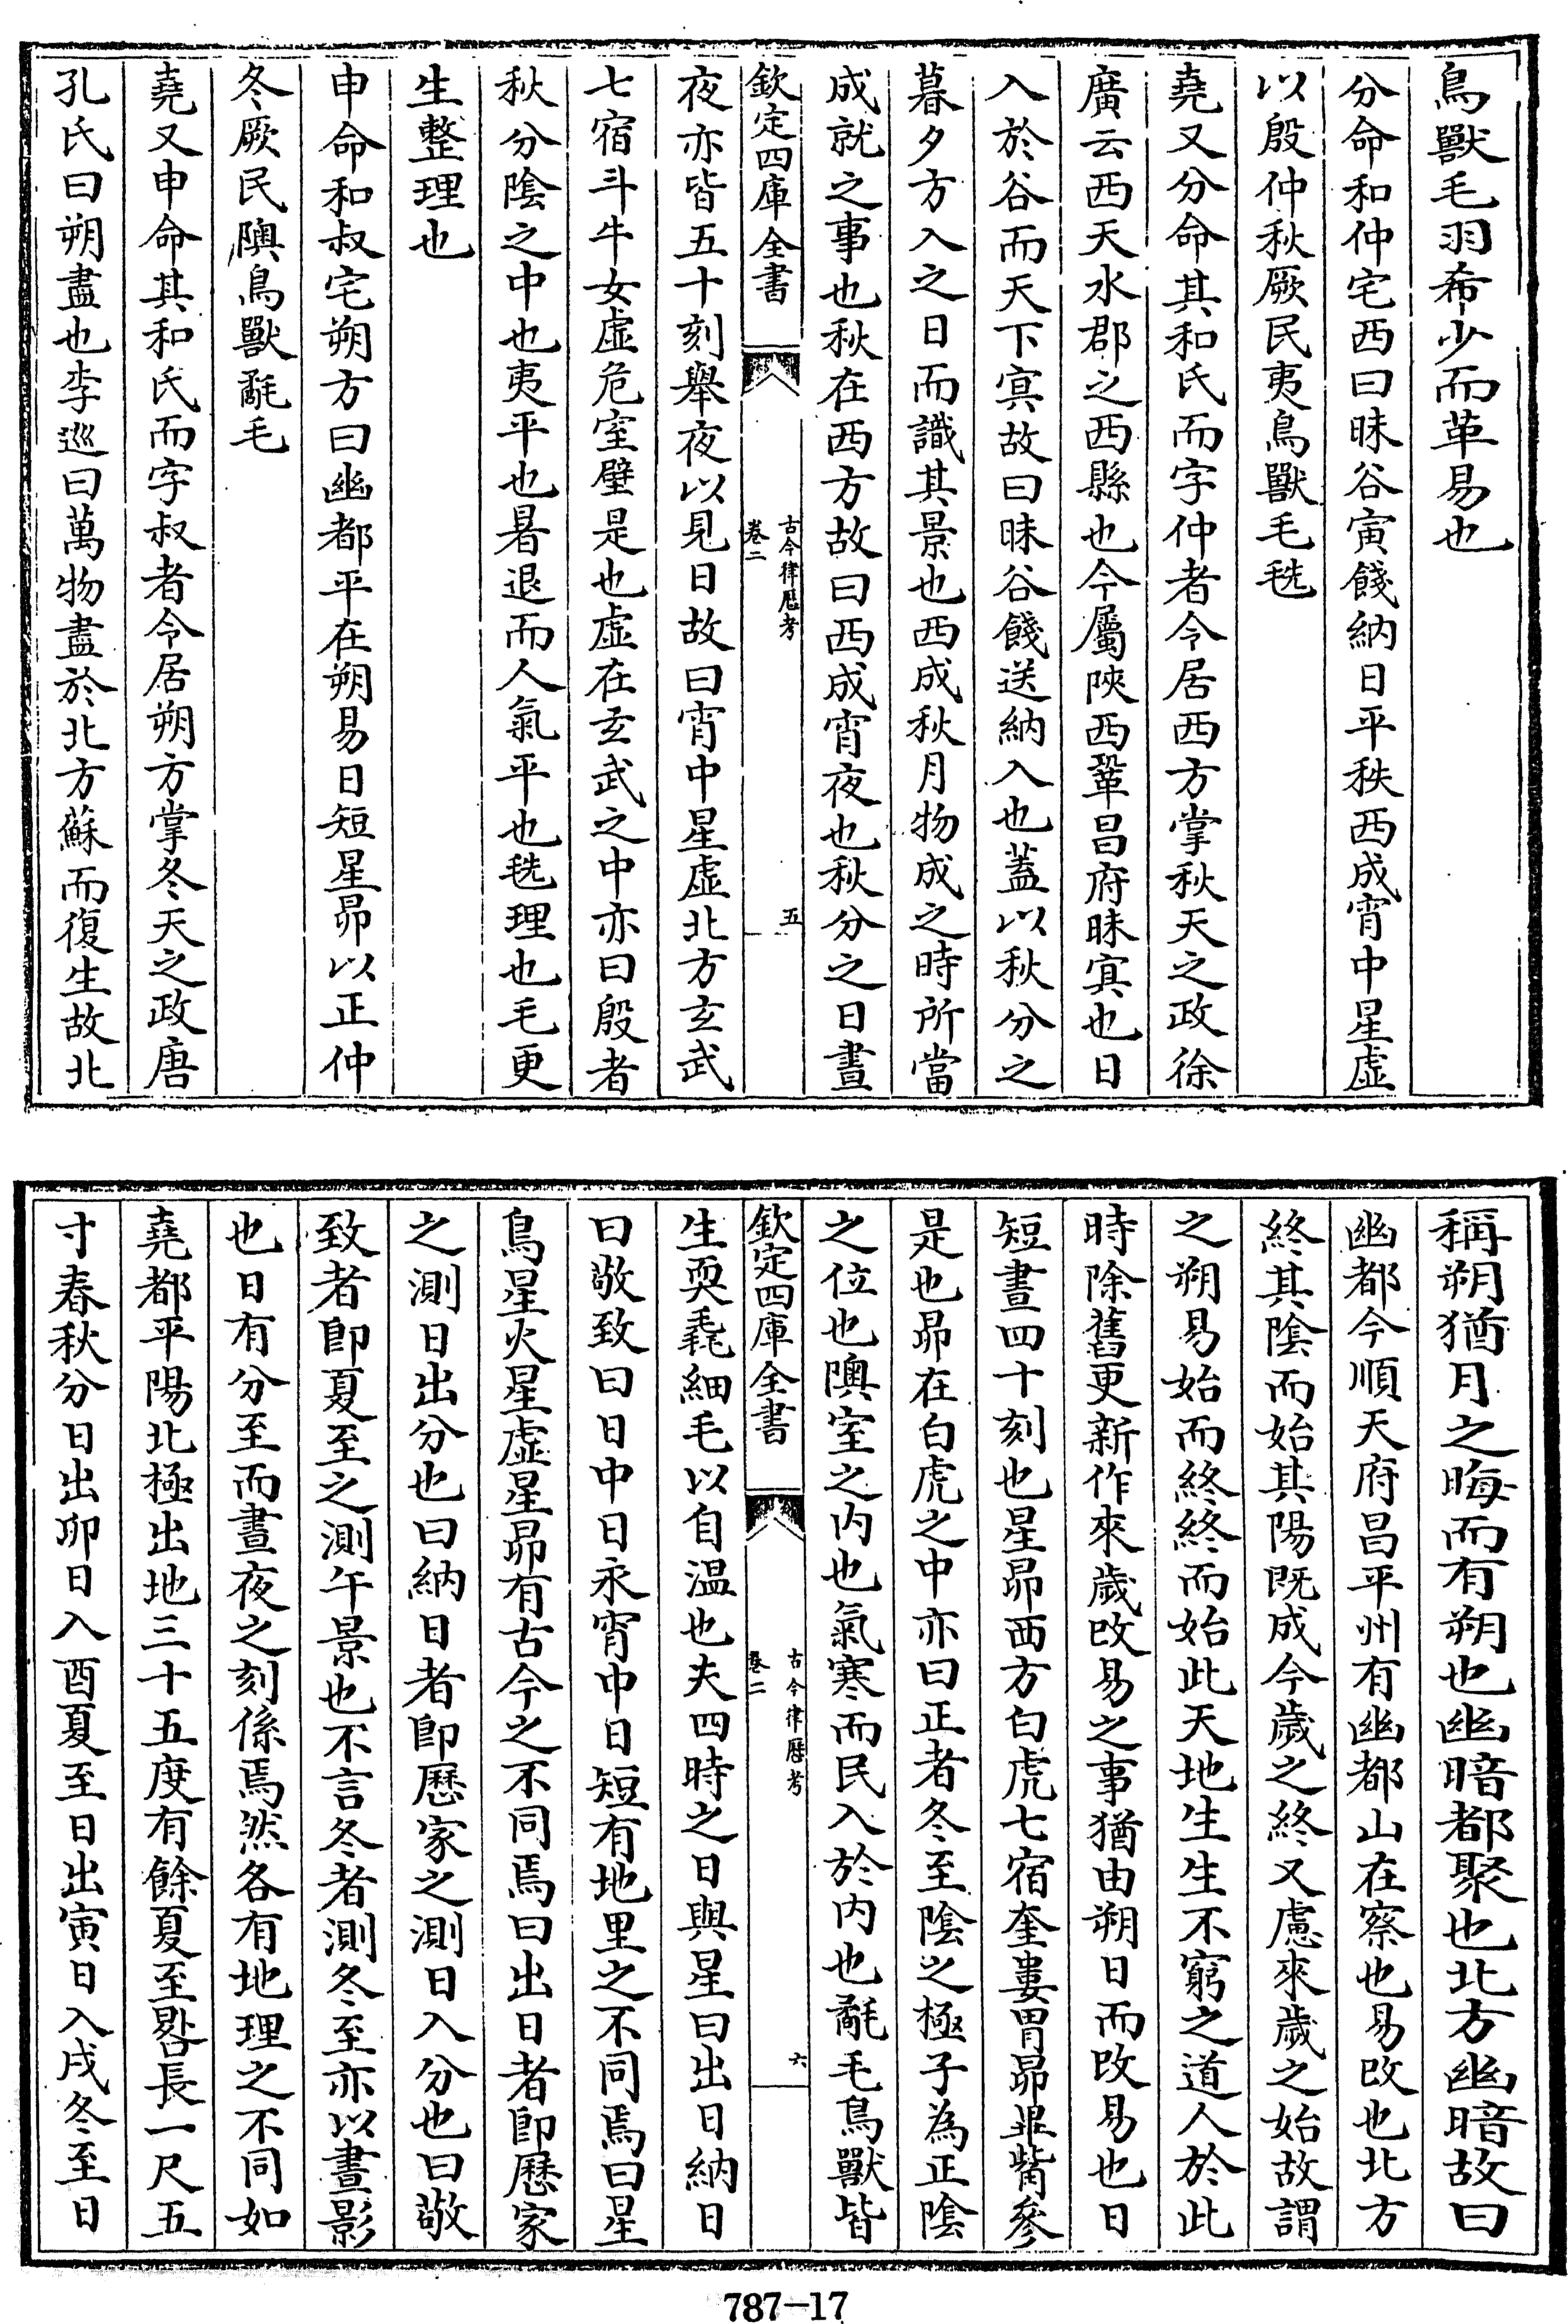 鳥獸毛羽希少而革易也
分命和仲宅西曰昧谷寅餞納日平秩西成宵中星虛
以殷仲秋厥民夷鳥獸毛毨
堯又分命其和氏而字仲者令居西方掌秋天之政徐
廣云西天水郡之西縣也今屬陜西鞏昌府昧㝠也日
入於谷而天下㝠故曰昧谷餞送納入也蓋以秋分之
暮夕方入之日而識其景也西成秋月物成之時所當
成就之事也秋在西方故曰西成宵夜也秋分之日晝
欽定四庫全書
古今律厯考
卷二
五
夜亦皆五十刻舉夜以見日故曰宵中星虛北方玄武
七宿斗牛女虛危室壁是也虛在玄武之中亦曰殷者
秋分陰之中也夷平也暑退而人氣平也毨理也毛更
生整理也
申命和叔宅朔方曰幽都平在朔易日短星昴以正仲
冬厥民隩鳥獸氄毛
堯又申命其和氏而字叔者令居朔方掌冬天之政唐
孔氏曰朔盡也李巡曰萬物盡於北方蘇而復生故北
稱朔猶月之晦而有朔也幽暗都聚也北方幽暗故曰
幽都今順天府昌平州有幽都山在察也易改也北方
終其陰而始其陽既成今歲之終又慮來歲之始故謂
之朔易始而終終而始此天地生生不窮之道人於此
時除舊更新作來歲改易之事猶由朔日而改易也日
短晝四十刻也星昴西方白虎七宿奎婁胃昴畢觜參
是也昴在白虎之中亦曰正者冬至陰之極子為正陰
之位也隩室之内也氣寒而民入於内也氄毛鳥獸皆
欽定四庫全書
古今律厯考
卷二
六
生耎毳細毛以自温也夫四時之日與星曰出日納日
曰敬致曰日中日永宵中日短有地里之不同焉曰星
鳥星火星虛星昴有古今之不同焉曰出日者即厯家
之測日出分也曰納日者即厯家之測日入分也曰敬
致者即夏至之測午景也不言冬者測冬至亦以晝影
也日有分至而晝夜之刻係焉然各有地理之不同如
堯都平陽北極出地三十五度有餘夏至晷長一尺五
寸春秋分日出卯日入酉夏至日出寅日入戌冬至日
787—17